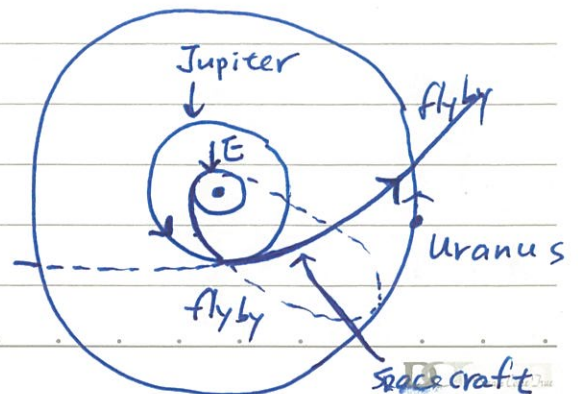 Jupiter
flyby
E
Uranus
flyby
spacecraft